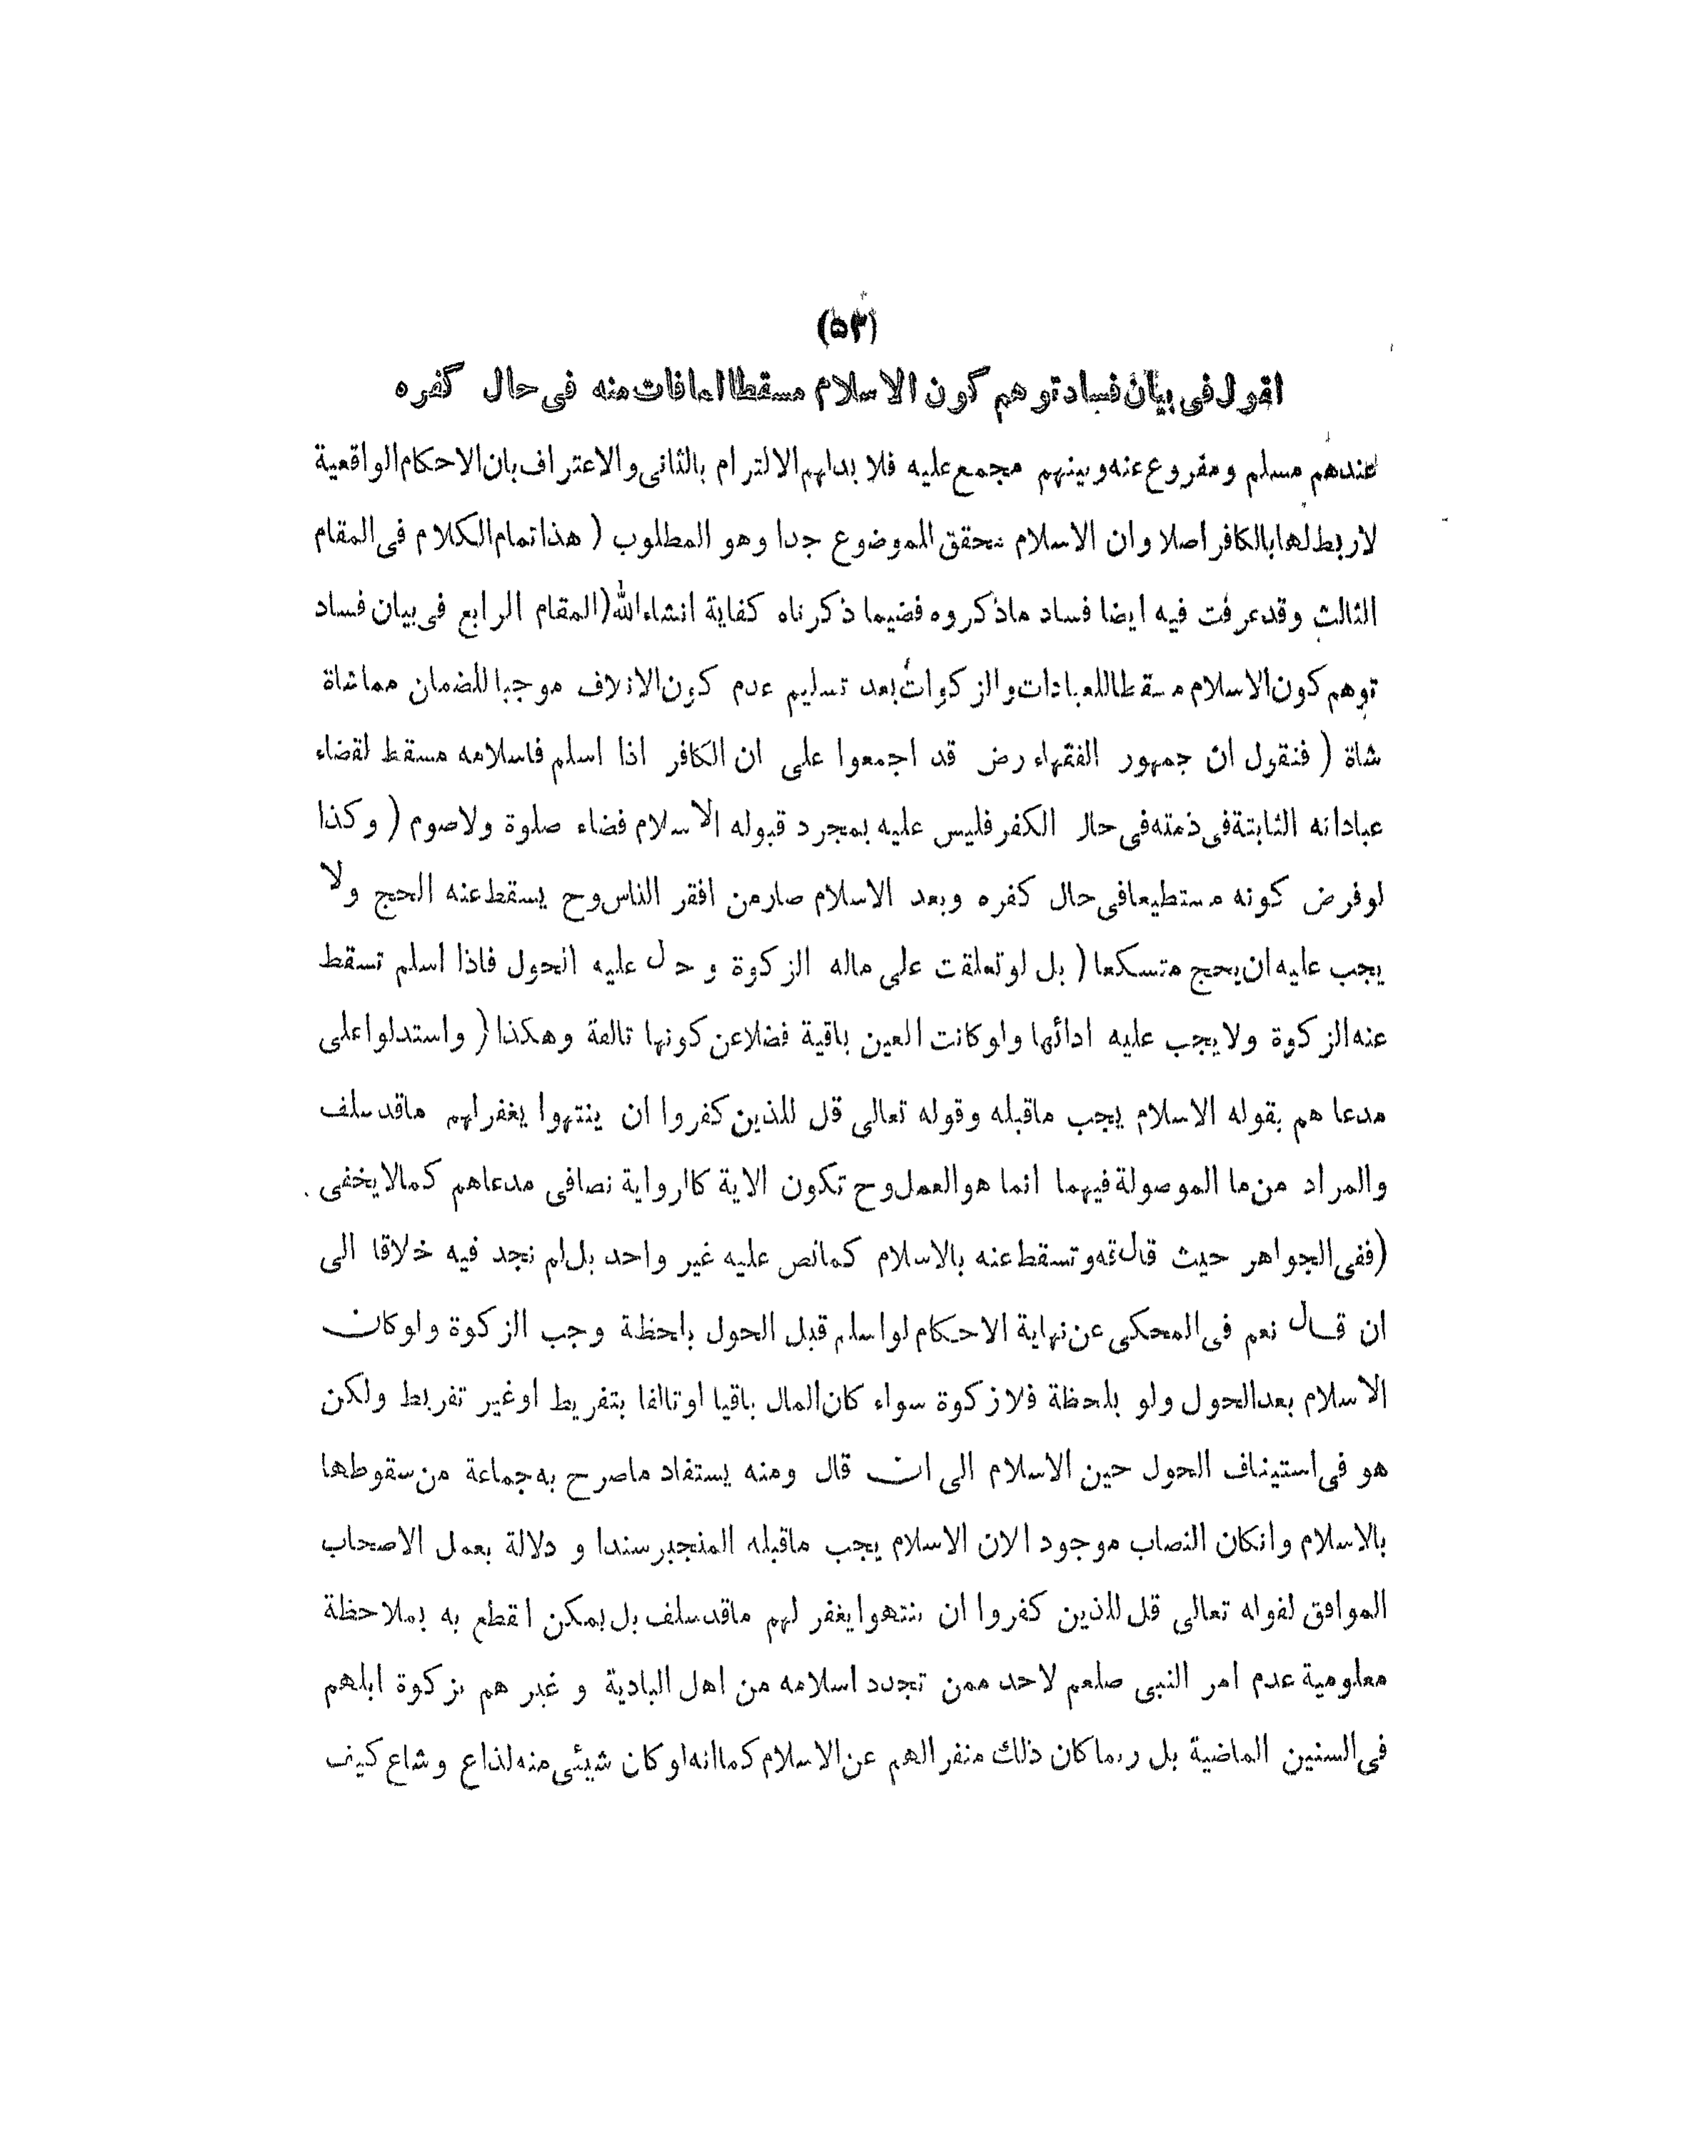 (۵۳)
اقول فی بیان فساد توهم کون الاسلام مسقطا لما فات منه فی حال کفره
عندهم مسلم ومفروع عنه وبینهم مجمع علیه فلا بدلهم الالتزام بالثانی والاعتراف بان الاحکام الواقعیة
لاربط لها بالکافر اصلا وان الاسلام محقق الموضوع جدا وهو المطلوب ( هذا تمام الکلام فی المقام
الثالث وقد عرفت فیه ایضا فساد ماذکروه فضیما ذکرناه کفایة انشاء الله (المقام الرابع فی بیان فساد
توهم کون الاسلام مسقطا للعبادات والزکوات بعد تسلیم عدم کون الاتلاف موجبا للضمان مماشاة
شاة ( فنقول ان جمهور الفقهاء رض قد اجمعوا علی ان الکافر اذا اسلم فاسلامه مسقط لقضاء
عباداته الثابتة فی ذمته فی حال الکفر فلیس علیه بمجرد قبوله الاسلام قضاء صلوة ولاصوم ( وکذا
لو فرض کونه مستطیعا فی حال کفره وبعد الاسلام صار من افقر الناس وح یسقط عنه الحج ولا
یجب علیه ان یحج متسکعا ( بل لو تعلقت علی ماله الزکوة وحل علیه الحول فاذا اسلم تسقط
عنه الزکوة ولا یجب علیه ادائها ولو کانت العین باقیة فضلا عن کونها تالفة وهکذا ( واستدلوا علی
مدعا هم بقوله الاسلام یجب ماقبله وقوله تعالی قل للذین کفروا ان ینتهوا یغفر لهم ماقد سلف
والمراد من ما الموصولة فیهما انما هو العمل وح تکون الایة کالروایة نصا فی مدعاهم کما لا یخفی
(ففی الجواهر حیث قال قه وتسقط عنه بالاسلام کما نص علیه غیر واحد بل لم نجد فیه خلافا الی
ان قال نعم فی المحکی عن نهایة الاحکام لو اسلم قبل الحول بلحظة وجب الزکوة ولو کان
الاسلام بعد الحول ولو بلحظة فلا زکوة سواء کان المال باقیا او تالفا بتفریط او غیر تفریط ولکن
هو فی استیناف الحول حین الاسلام الی ان قال ومنه یستفاد ماصرح به جماعة من سقوطها
بالاسلام وانکان النصاب موجود الان الاسلام یجب ماقبله المنجبر سندا و دلالة بعمل الاصحاب
الموافق لقوله تعالی قل للذین کفروا ان ینتهوا یغفر لهم ماقد سلف بل یمکن القطع به بملاحظة
معلومیة عدم امر النبی صلعم لاحد ممن تجدد اسلامه من اهل البادیة و غیر هم بزکوة ابلهم
فی السنین الماضیة بل ربما کان ذلك منفرا لهم عن الاسلام کما انه لو کان شیئی منه لذاع وشاع کیف